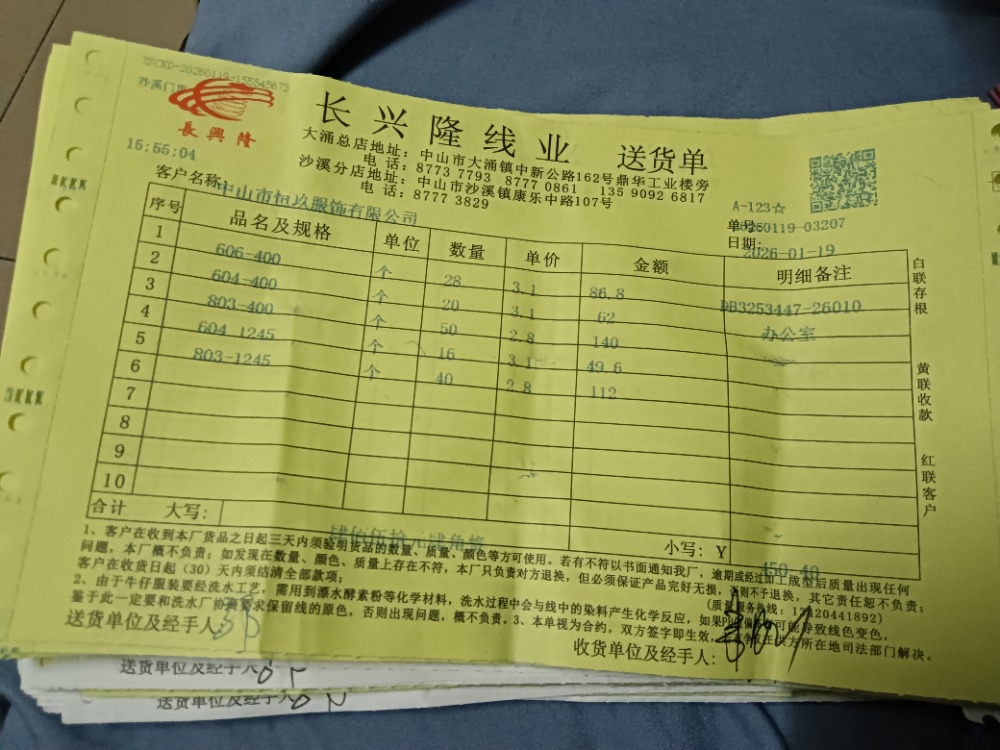 XSCKD-20260119-155545673
沙溪门市
長興隆
长兴隆线业 送货单
大涌总店地址：中山市大涌镇中新公路162号鼎华工业楼旁
电话：8773 7793 8777 0861 135 9092 6817
沙溪分店地址：中山市沙溪镇康乐中路107号
电话：8777 3829
15:55:04
A-123☆
客户名称 中山市恒玖服饰有限公司
单号: 20260119-03207
日期: 2026-01-19
序号 品名及规格 单位 数量 单价 金额 明细备注
1 606-400 个 28 3.1 86.8 DB3253447-26010
2 604-400 个 20 3.1 62 办公室
3 803-400 个 50 2.8 140
4 604 1245 个 16 3.1 49.6
5 803-1245 个 40 2.8 112
6
7
8
9
10
合计 大写： 肆佰伍拾元肆角整 小写：Y 450.40
白联存根 黄联收款 红联客户
1、客户在收到本厂货品之日起三天内须验明货品的数量、质量、颜色等方可使用。若有不符以书面通知我厂，逾期或经过加工成型后质量出现任何
问题，本厂概不负责；如发现在数量、颜色、质量上存在不符，本厂只负责对方退换，但必须保证产品完好无损，否则不予退换，其它责任恕不负责；
客户在收货日起（30）天内须结清全部款项；
2、由于牛仔服装要经洗水工艺，需用到漂水酵素粉等化学材料，洗水过程中会与线中的染料产生化学反应，如果PH值偏 可能导致线色变色，
鉴于此一定要和洗水厂协商要求保留线的原色，否则出现问题，概不负责。3、本单视为合约，双方签字即生效， 在供方所在地司法部门解决。
送货单位及经手人：
收货单位及经手人：
送货单位及经手人
送货单位及经手人